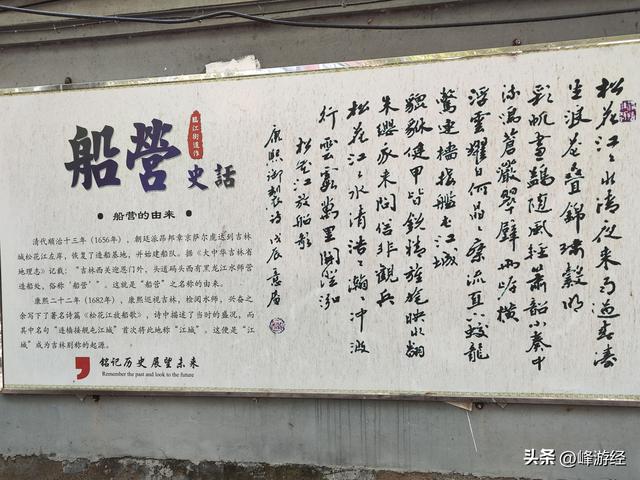 松花江〻水清夜来雨過春濤
生浪花疊錦繡縠明
彩帆畫鷁随風輕簫韶小奏中
流鳴蒼巖翠壁兩岸横
浮雲耀日何晶〻乘流直下蛟龍
驚連檣接艦屯江城
貔貅健甲皆銳精旌旄映水翻
朱纓我来問俗非觀兵
松花江〻水清浩〻瀚〻冲波
行雲霞萬里開澄泓
松花江放船歌
康熙御製詩 戊辰
船營史話
臨江街道作
● 船营的由来 ●
清代顺治十三年（1656年），朝廷派昂邦章京萨尔虎达到吉林
城松花江左岸，恢复了造船基地，并始建船队。据《大中华吉林省
地理志》记载："吉林西关迎恩门外，头道码头西有黑龙江水师营
造船处，俗称"船营"。"这就是"船营"之名称的由来。
康熙二十二年（1682年），康熙巡视吉林，检阅水师，兴奋之
余写下了著名诗篇《松花江放船歌》，诗中描述了当时的盛况，而
其中名句"连樯接舰屯江城"首次将此地称"江城"。这便是"江
城"成为吉林别称的起源。
铭记历史 展望未来
Remember the past and look to the future
头条 @峰游经